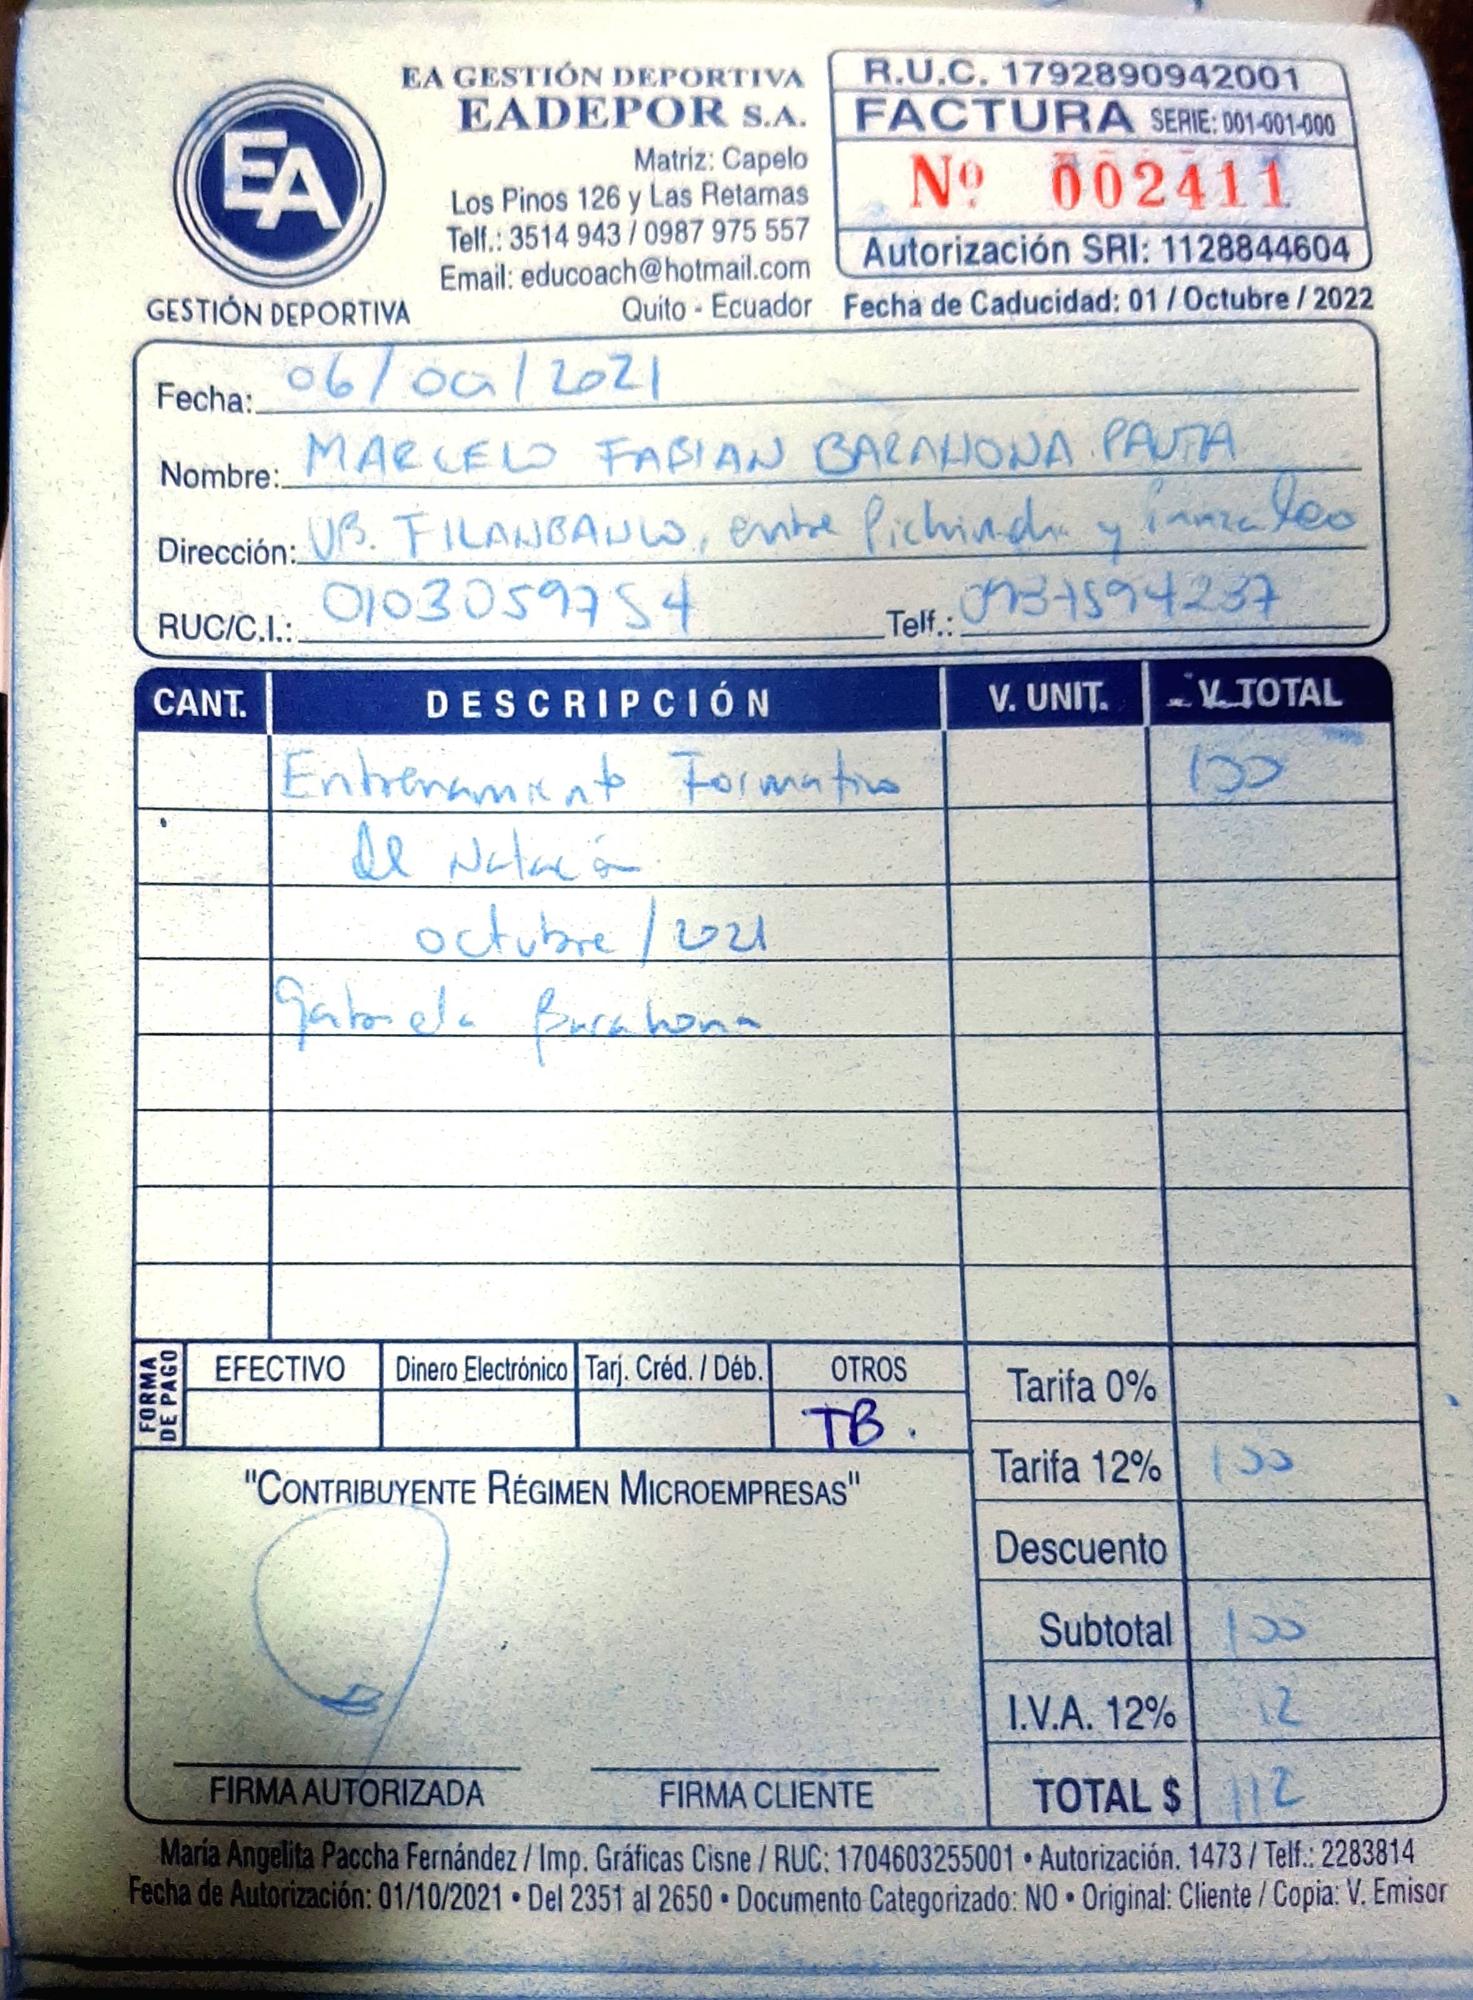 EA GESTIÓN DEPORTIVA
EADEPOR S.A.
Matriz: Capelo
Los Pinos 126 y Las Retamas
Telf.: 3514 943 / 0987 975 557
Email: educoach@hotmail.com
Quito - Ecuador
EA
GESTIÓN DEPORTIVA
R.U.C. 1792890942001
FACTURA SERIE: 001-001-000
Nº 002411
Autorización SRI: 1128844604
Fecha de Caducidad: 01 / Octubre / 2022
Fecha: 06/oct/2021
Nombre: MARCELO FABIAN BARAHONA PAUTA
Dirección: UB. FILANBANCO, entre Pichincha y
RUC/C.I.: 0103059754 Telf.:
CANT. DESCRIPCIÓN V. UNIT. V. TOTAL
Entrenamiento Formativo 100
de Natación
octubre / 2021
Gabriela Barahona
FORMA DE PAGO
EFECTIVO Dinero Electrónico Tarj. Créd. / Déb. OTROS
TB.
Tarifa 0%
Tarifa 12% 100
Descuento
Subtotal 100
I.V.A. 12% 12
TOTAL $ 112
"CONTRIBUYENTE RÉGIMEN MICROEMPRESAS"
FIRMA AUTORIZADA FIRMA CLIENTE
María Angelita Paccha Fernández / Imp. Gráficas Cisne / RUC: 1704603255001 • Autorización. 1473 / Telf.: 2283814
Fecha de Autorización: 01/10/2021 • Del 2351 al 2650 • Documento Categorizado: NO • Original: Cliente / Copia: V. Emisor